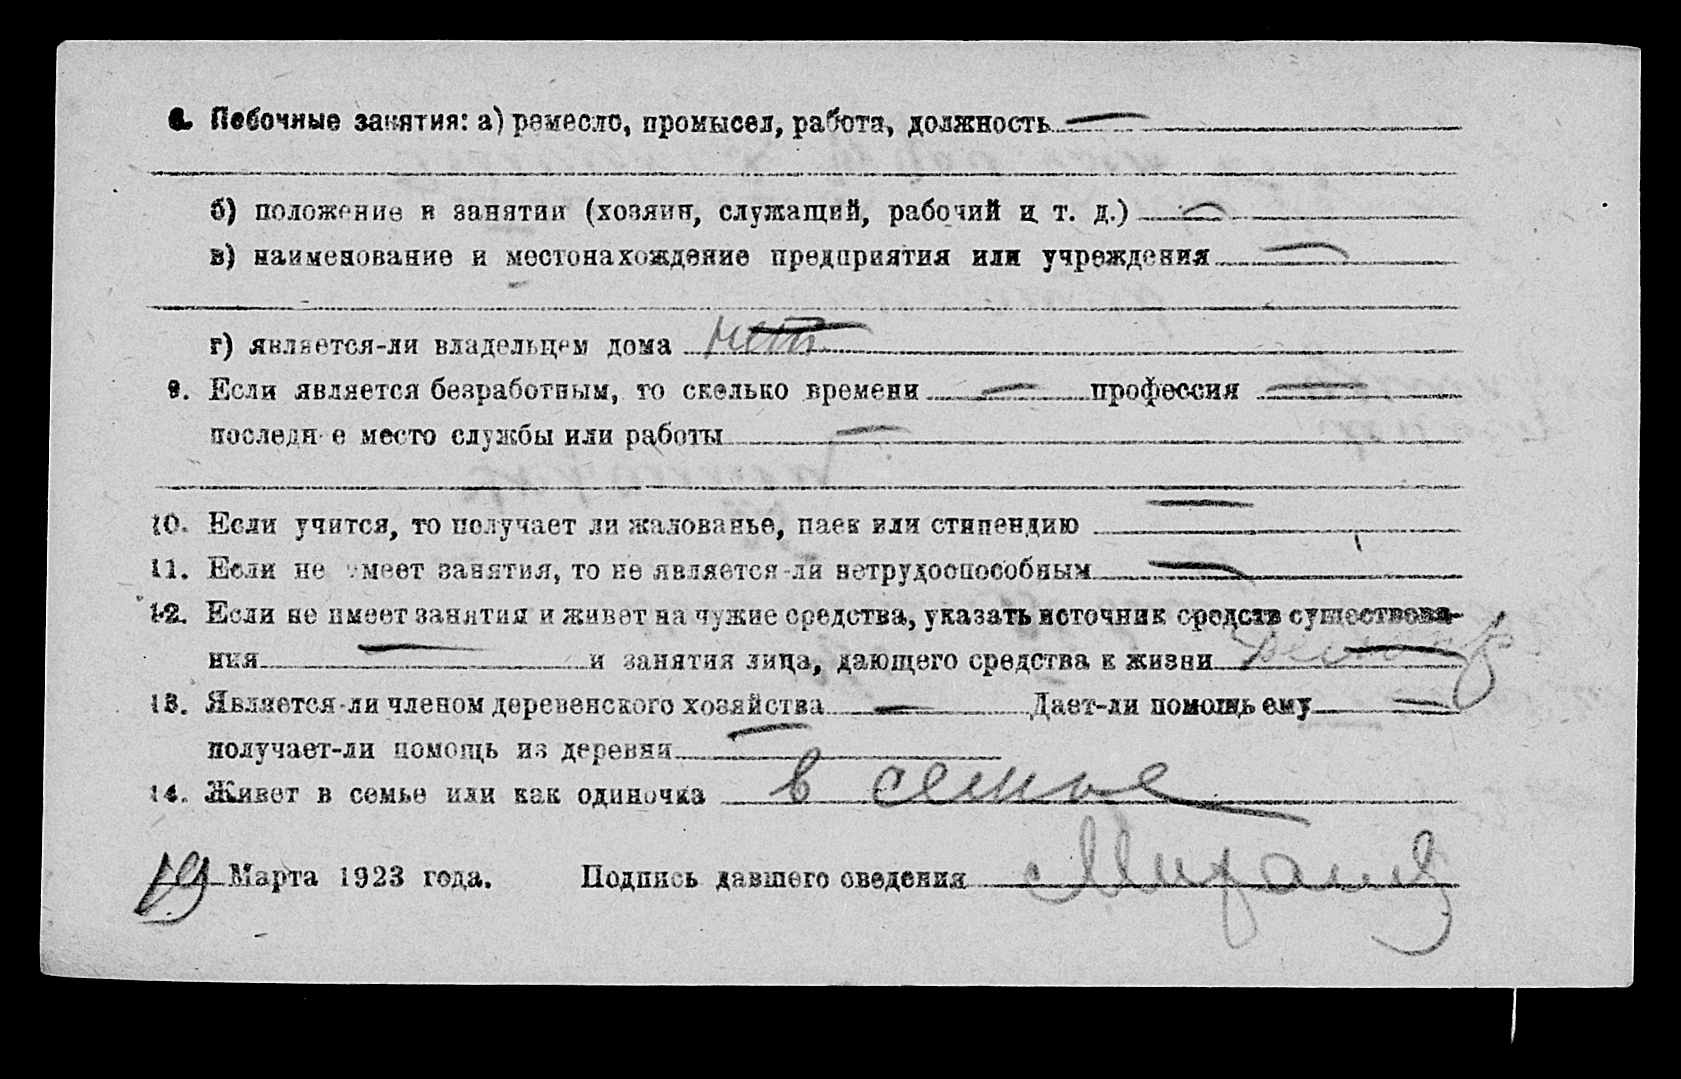 8. Побочные занятия: а) ремесло, промысел, работа, должность —
б) положение в занятии (хозяин, служащий, рабочий и т. д.) —
в) наименование и местонахождение предприятия или учреждения —
г) является-ли владельцем дома нет
9. Если является безработным, то сколько времени — профессия —
последн е место службы или работы —
10. Если учится, то получает ли жалованье, паек или стипендию —
11. Если не имеет занятия, то не является-ли нетрудоспособным —
12. Если не имеет занятия и живет на чужие средства, указать источник средств существова-
ния — и занятия лица, дающего средства к жизни
13. Является-ли членом деревенского хозяйства — Дает-ли помощь ему —
получает-ли помощь из деревни —
14. Живет в семье или как одиночка в семье
19 Марта 1923 года. Подпись давшего сведения